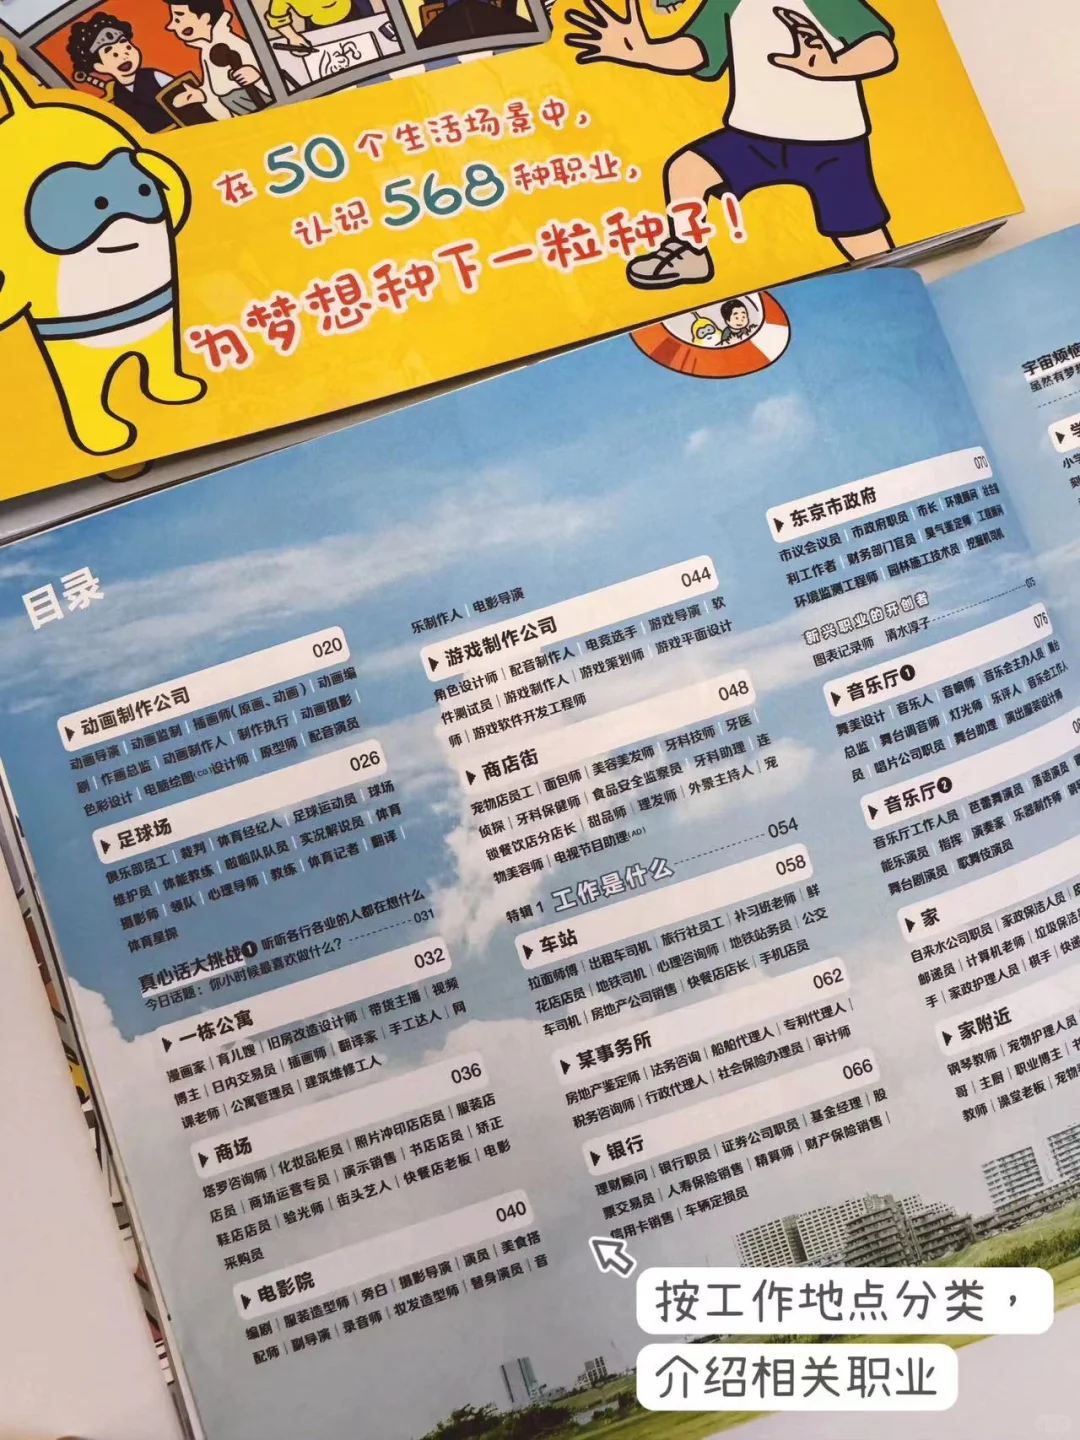 在50个生活场景中，
认识568种职业，
为梦想种下一粒种子！
目录
动画制作公司 020
动画导演｜动画监制｜插画师（原画、动画）｜动画编
剧｜作画总监｜动画制作人｜制作执行｜动画摄影｜
色彩设计｜电脑绘图(CG)设计师｜原型师｜配音演员
足球场 026
俱乐部员工｜裁判｜体育经纪人｜足球运动员｜球场
维护员｜体能教练｜啦啦队队员｜实况解说员｜体育
摄影师｜领队｜心理导师｜教练｜体育记者｜翻译｜
体育星探
真心话大挑战❶ 听听各行各业的人都在想什么
今日话题：你小时候最喜欢做什么？ 031
一栋公寓 032
漫画家｜育儿嫂｜旧房改造设计师｜带货主播｜视频
博主｜日内交易员｜插画师｜翻译家｜手工达人｜网
课老师｜公寓管理员｜建筑维修工人
商场 036
塔罗咨询师｜化妆品柜员｜照片冲印店店员｜服装店
店员｜商场运营专员｜演示销售｜书店店员｜矫正
鞋店店员｜验光师｜街头艺人｜快餐店老板｜电影
采购员
电影院 040
编剧｜服装造型师｜旁白｜摄影导演｜演员｜美食搭
配师｜副导演｜录音师｜妆发造型师｜替身演员｜音
乐制作人｜电影导演
游戏制作公司 044
角色设计师｜配音制作人｜电竞选手｜游戏导演｜软
件测试员｜游戏制作人｜游戏策划师｜游戏平面设计
师｜游戏软件开发工程师
商店街 048
宠物店员工｜面包师｜美容美发师｜牙科技师｜牙医｜
侦探｜牙科保健师｜食品安全监察员｜牙科助理｜连
锁餐饮店分店长｜甜品师｜理发师｜外景主持人｜宠
物美容师｜电视节目助理(AD)
特辑1 工作是什么 054
车站 058
拉面师傅｜出租车司机｜旅行社员工｜补习班老师｜鲜
花店店员｜地铁司机｜心理咨询师｜地铁站务员｜公交
车司机｜房地产公司销售｜快餐店店长｜手机店员
某事务所 062
房地产鉴定师｜法务咨询｜船舶代理人｜专利代理人｜
税务咨询师｜行政代理人｜社会保险办理员｜审计师
银行 066
理财顾问｜银行职员｜证券公司职员｜基金经理｜股
票交易员｜人寿保险销售｜精算师｜财产保险销售｜
信用卡销售｜车辆定损员
东京市政府 070
市议会议员｜市政府职员｜市长｜环境顾问｜社会福
利工作者｜财务部门官员｜臭气鉴定师｜工程顾问
环境监测工程师｜园林施工技术员｜挖掘机司机
新兴职业的开创者
图表记录师 清水淳子
音乐厅❶ 076
舞美设计｜音乐人｜音响师｜音乐会主办人员｜舞台
总监｜舞台调音师｜灯光师｜乐评人｜音乐会工作人
员｜唱片公司职员｜舞台助理｜演出服装设计师
音乐厅❷
音乐厅工作人员｜芭蕾舞演员｜落语演员
能乐演员｜指挥｜演奏家｜乐器制作师
舞台剧演员｜歌舞伎演员
家
自来水公司职员｜家政保洁人员
邮递员｜计算机老师｜垃圾保洁
手｜家政护理人员｜棋手｜快递
家附近
钢琴教师｜宠物护理人员
哥｜主厨｜职业博主
教师｜澡堂老板｜宠物
宇宙烦恼
虽然有梦想
小学
按工作地点分类，
介绍相关职业